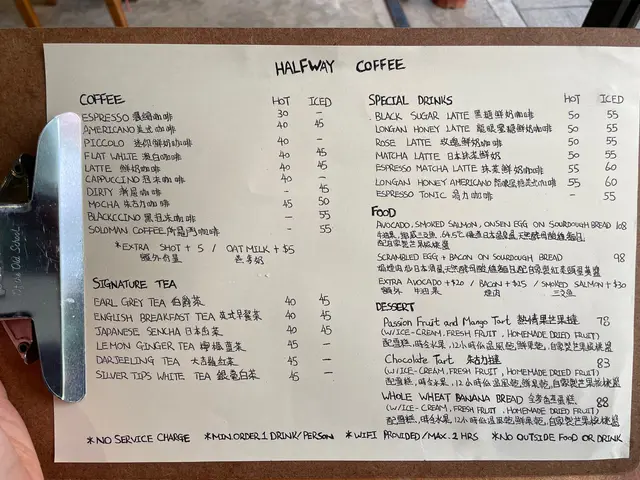 HALFWAY COFFEE
COFFEE HOT ICED
ESPRESSO 濃縮咖啡 30 -
AMERICANO 美式咖啡 40 45
PICCOLO 迷你鮮奶咖啡 40 -
FLAT WHITE 澳白咖啡 40 45
LATTE 鮮奶咖啡 40 45
CAPPUCCINO 泡沫咖啡 40 -
DIRTY 漸層咖啡 - 45
MOCHA 朱古力咖啡 45 50
BLACKCCINO 黑泡沫咖啡 - 55
SOLOMAN COFFEE 所羅門咖啡 - 55
*EXTRA SHOT + 5 / OAT MILK + $5
額外份量 燕麥奶
SIGNATURE TEA
EARL GREY TEA 伯爵茶 40 45
ENGLISH BREAKFAST TEA 英式早餐茶 40 45
JAPANESE SENCHA 日本煎茶 40 45
LEMON GINGER TEA 檸檬薑茶 45 -
DARJEELING TEA 大吉嶺紅茶 45 -
SILVER TIPS WHITE TEA 銀毫白茶 45 -
SPECIAL DRINKS HOT ICED
BLACK SUGAR LATTE 黑糖鮮奶咖啡 50 55
LONGAN HONEY LATTE 龍眼蜜糖鮮奶咖啡 50 55
ROSE LATTE 玫瑰鮮奶咖啡 50 55
MATCHA LATTE 日本抹茶鮮奶 50 55
ESPRESSO MATCHA LATTE 抹茶鮮奶咖啡 55 60
LONGAN HONEY AMERICANO 龍眼蜜糖美式咖啡 55 60
ESPRESSO TONIC 湯力咖啡 - 55
FOOD
AVOCADO, SMOKED SALMON, ONSEN EGG ON SOURDOUGH BREAD 108
牛油果, 煙燻三文魚, 64.5℃ 日本溫泉蛋, 天然酵母酸種麵包
配自家製芒果核桃醬
SCRAMBLED EGG + BACON ON SOURDOUGH BREAD 98
EXTRA AVOCADO +$20 / BACON +$15 / SMOKED SALMON +$30
額外 牛油果 煙肉 三文魚
DESSERT
Passion Fruit and Mango Tart 熱情果芒果撻 78
(W/ICE-CREAM, FRESH FRUIT, HOMEMADE DRIED FRUIT)
配雪糕, 時令水果, 12小時低溫風乾鮮果乾, 自家製芒果核桃醬
Chocolate Tart 朱古力撻 83
(W/ICE-CREAM, FRESH FRUIT, HOMEMADE DRIED FRUIT)
配雪糕, 時令水果, 12小時低溫風乾鮮果乾, 自家製芒果核桃醬
WHOLE WHEAT BANANA BREAD 全麥香蕉蛋糕 88
(W/ICE-CREAM, FRESH FRUIT, HOMEMADE DRIED FRUIT)
配雪糕, 時令水果, 12小時低溫風乾鮮果乾, 自家製芒果核桃醬
*NO SERVICE CHARGE *MIN.ORDER 1 DRINK/PERSON *WIFI PROVIDED/MAX. 2 HRS *NO OUTSIDE FOOD OR DRINK